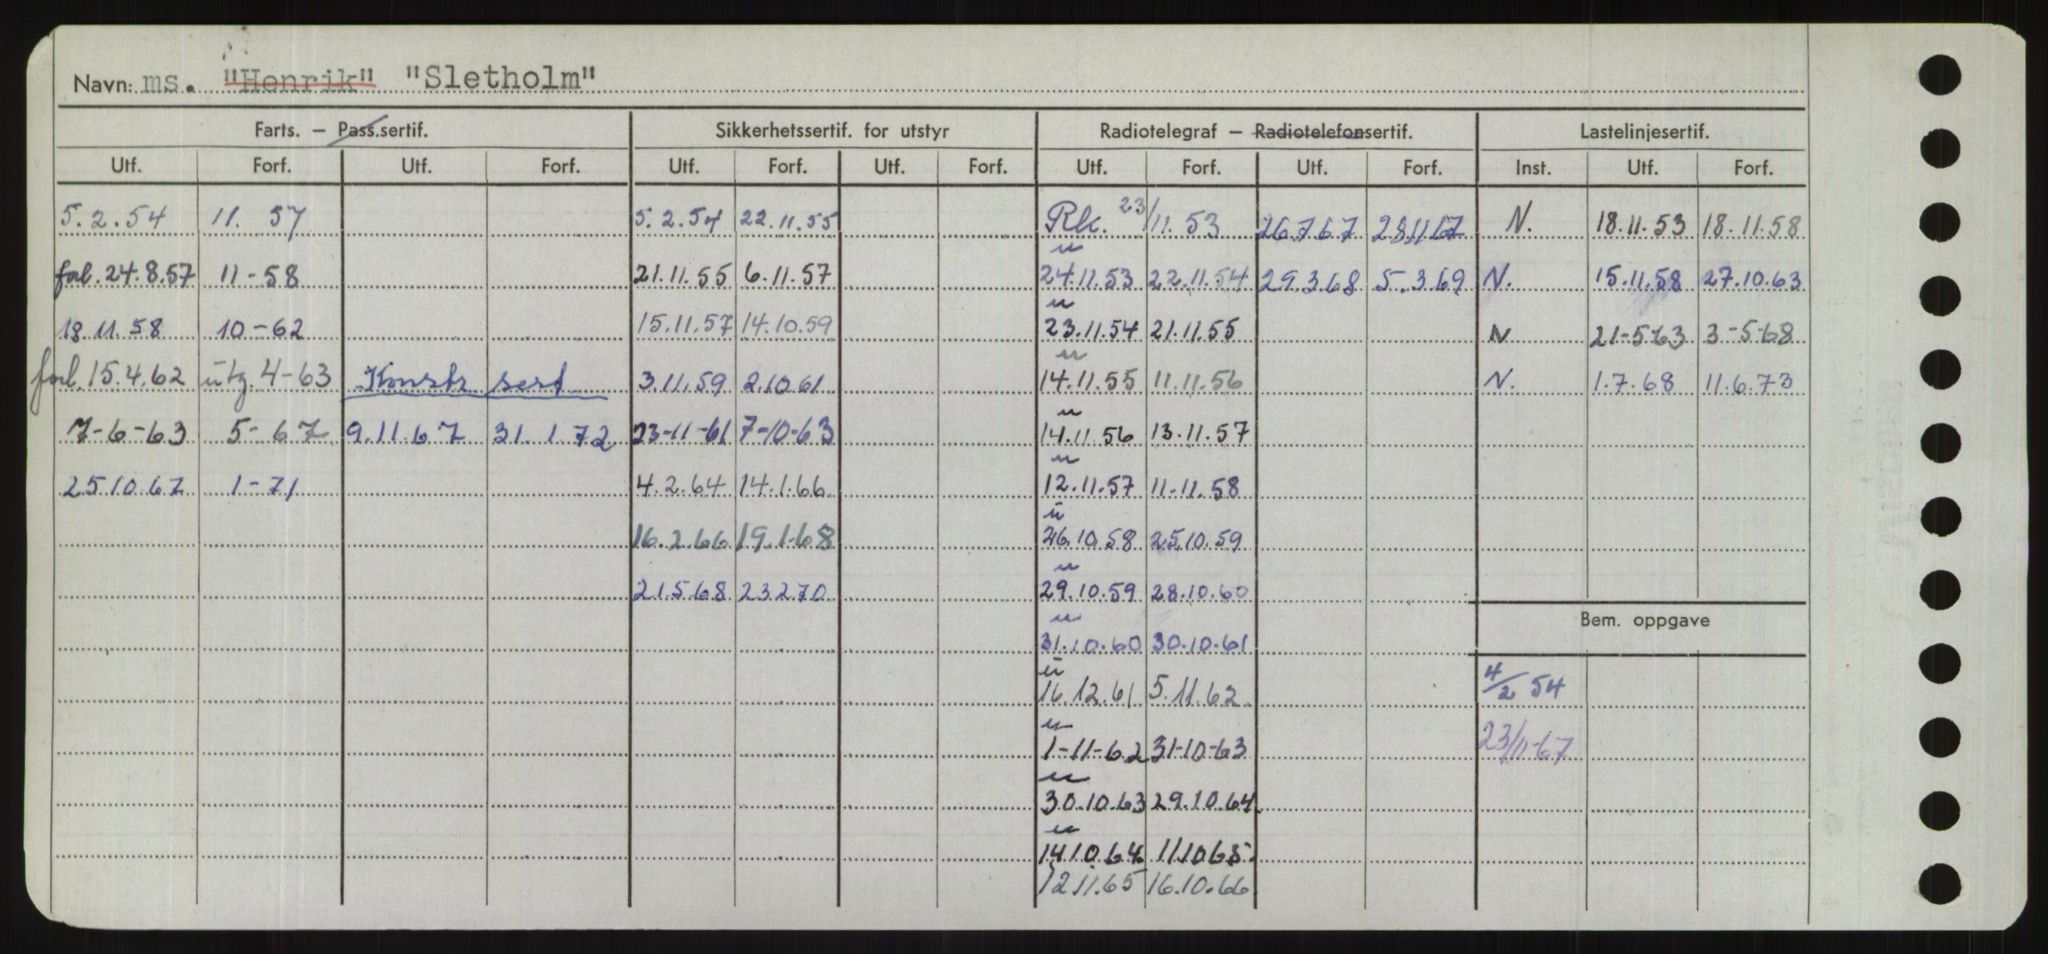 Navn: ms. "Henrik" "Sletholm"
Farts. – Pass.sertif. Sikkerhetssertif. for utstyr Radiotelegraf – Radiotelefonsertif. Lastelinjesertif.
Utf. Forf. Utf. Forf. Utf. Forf. Utf. Forf. Utf. Forf. Utf. Forf. Inst. Utf. Forf.
5.2.54 11. 57 5.2.54 22.11.55 Rk. 23/11.53 26.7.67 28.11.67 N. 18.11.53 18.11.58
"
forl. 24.8.57 11-58 21.11.55 6.11.57 24.11.53 22.11.54 29.3.68 5.3.69 N. 15.11.58 27.10.63
"
18.11.58 10-62 15.11.57 14.10.59 23.11.54 21.11.55 N 21-5-63 3-5-68
"
forl. 15.4.62 utg. 4-63 Konstr sert 3.11.59 2.10.61 14.11.55 11.11.56 N. 1.7.68 11.6.73
"
7-6-63 5-67 9.11.67 31.1.72 23-11-61 7-10-63 14.11.56 13.11.57
"
25.10.67 1-71 4.2.64 14.1.66 12.11.57 11.11.58
"
16.2.66 19.1.68 26.10.58 25.10.59
"
21.5.68 23.2.70 29.10.59 28.10.60
Bem. oppgave
"
31.10.60 30.10.61
"
16.12.61 5.11.62 4/2 54
"
1-11-62 31-10-63 23/11-67
"
30.10.63 29.10.64
"
14.10.64 11.10.65
12.11.65 16.10.66